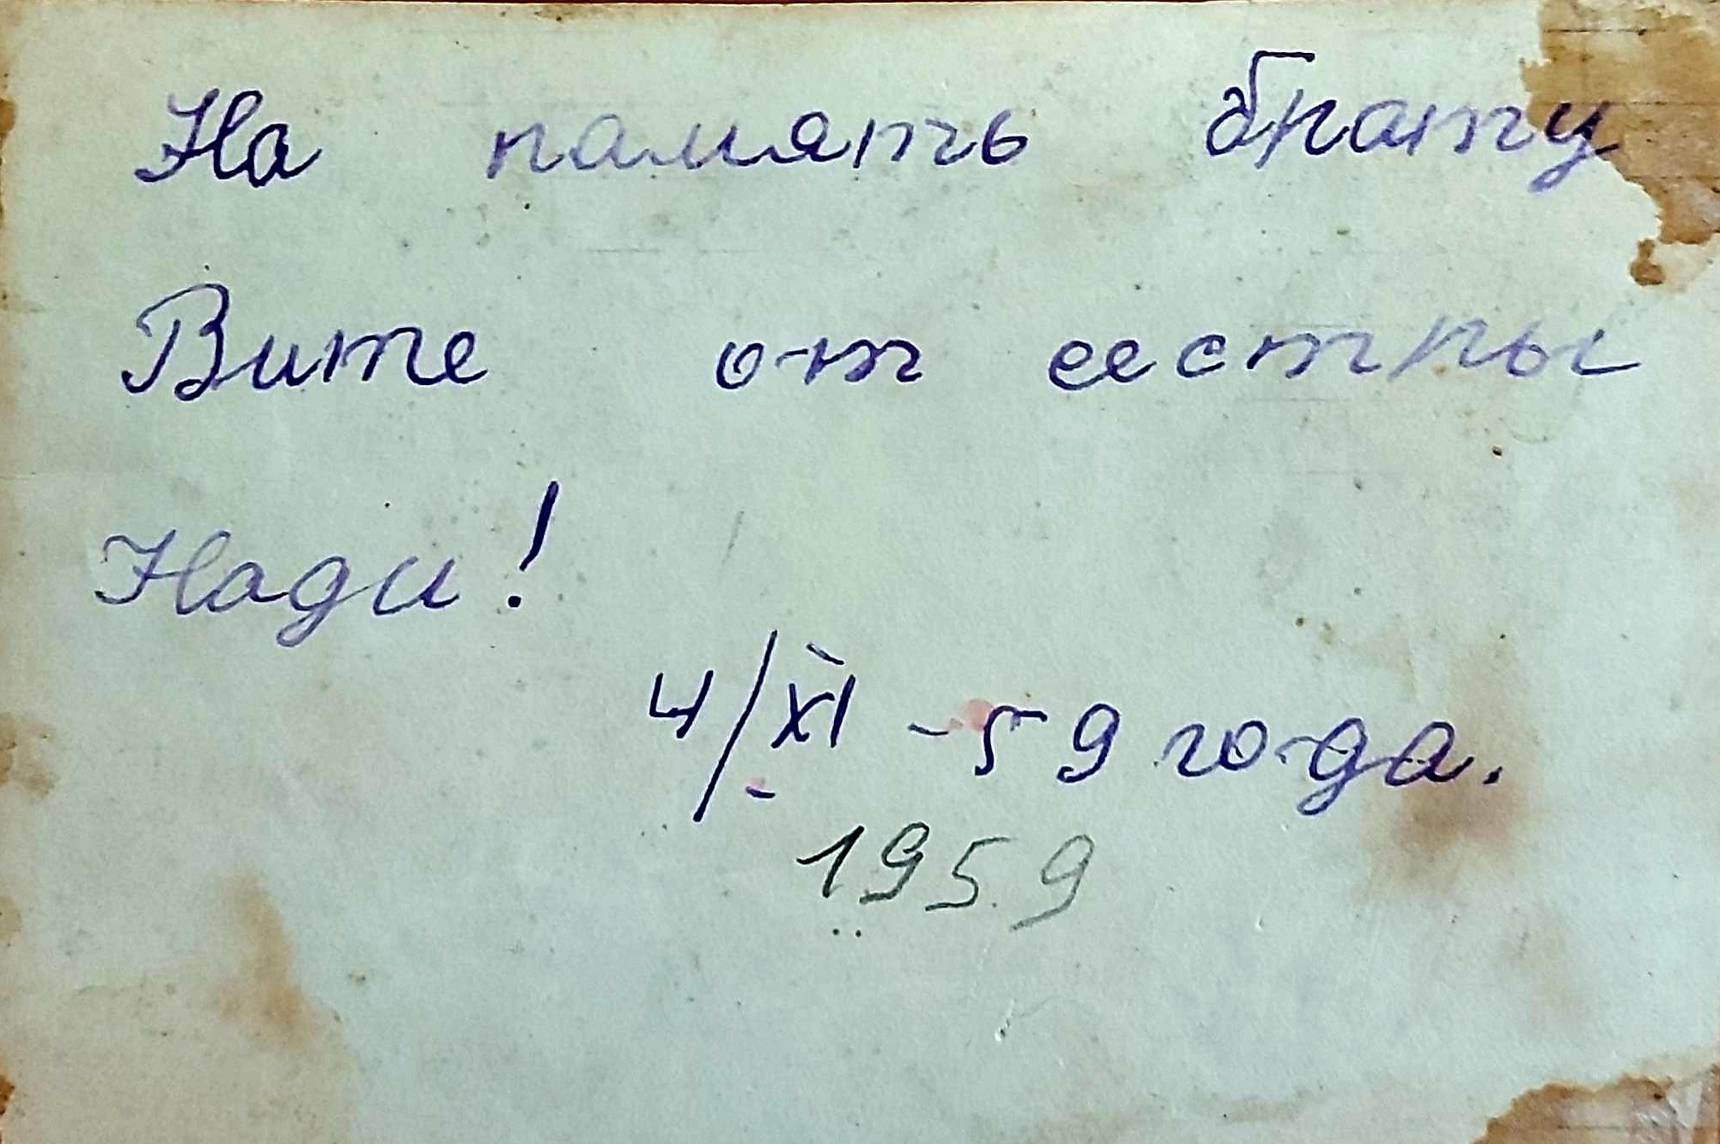 На память брату
Вите от сестры
Нади!
4/XI - 59 года.
1959